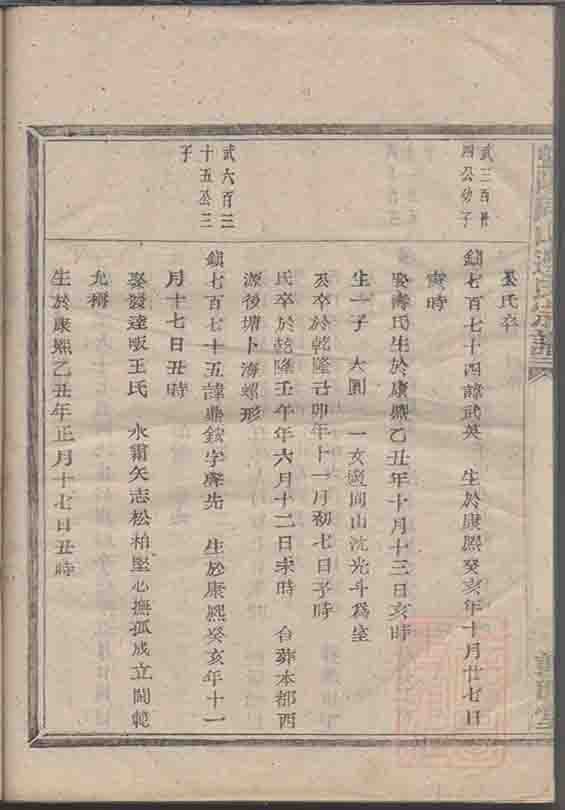 武三百卅
四公幼子
吳氏卒
鎮七百七十四諱武英 生於康熙癸亥年十月廿七日
寅時
娶壽氏生於康熙乙丑年十月十三日亥時
生一子 大圓 一女適同山沈光斗為室
公卒於乾隆己卯年十一月初七日子時
氏卒於乾隆壬午年六月十二日未時 合葬本都西
源後塘卜海螺形
武六百三
十五公三
子
鎮七百七十五諱鼎銨字 先 生於康熙癸亥年十一
月十七日丑時
娶 達畈王氏 水霜矢志松柏堅心撫孤成立閫範
允稱
生於康熙乙丑年正月十七日丑時
宗譜